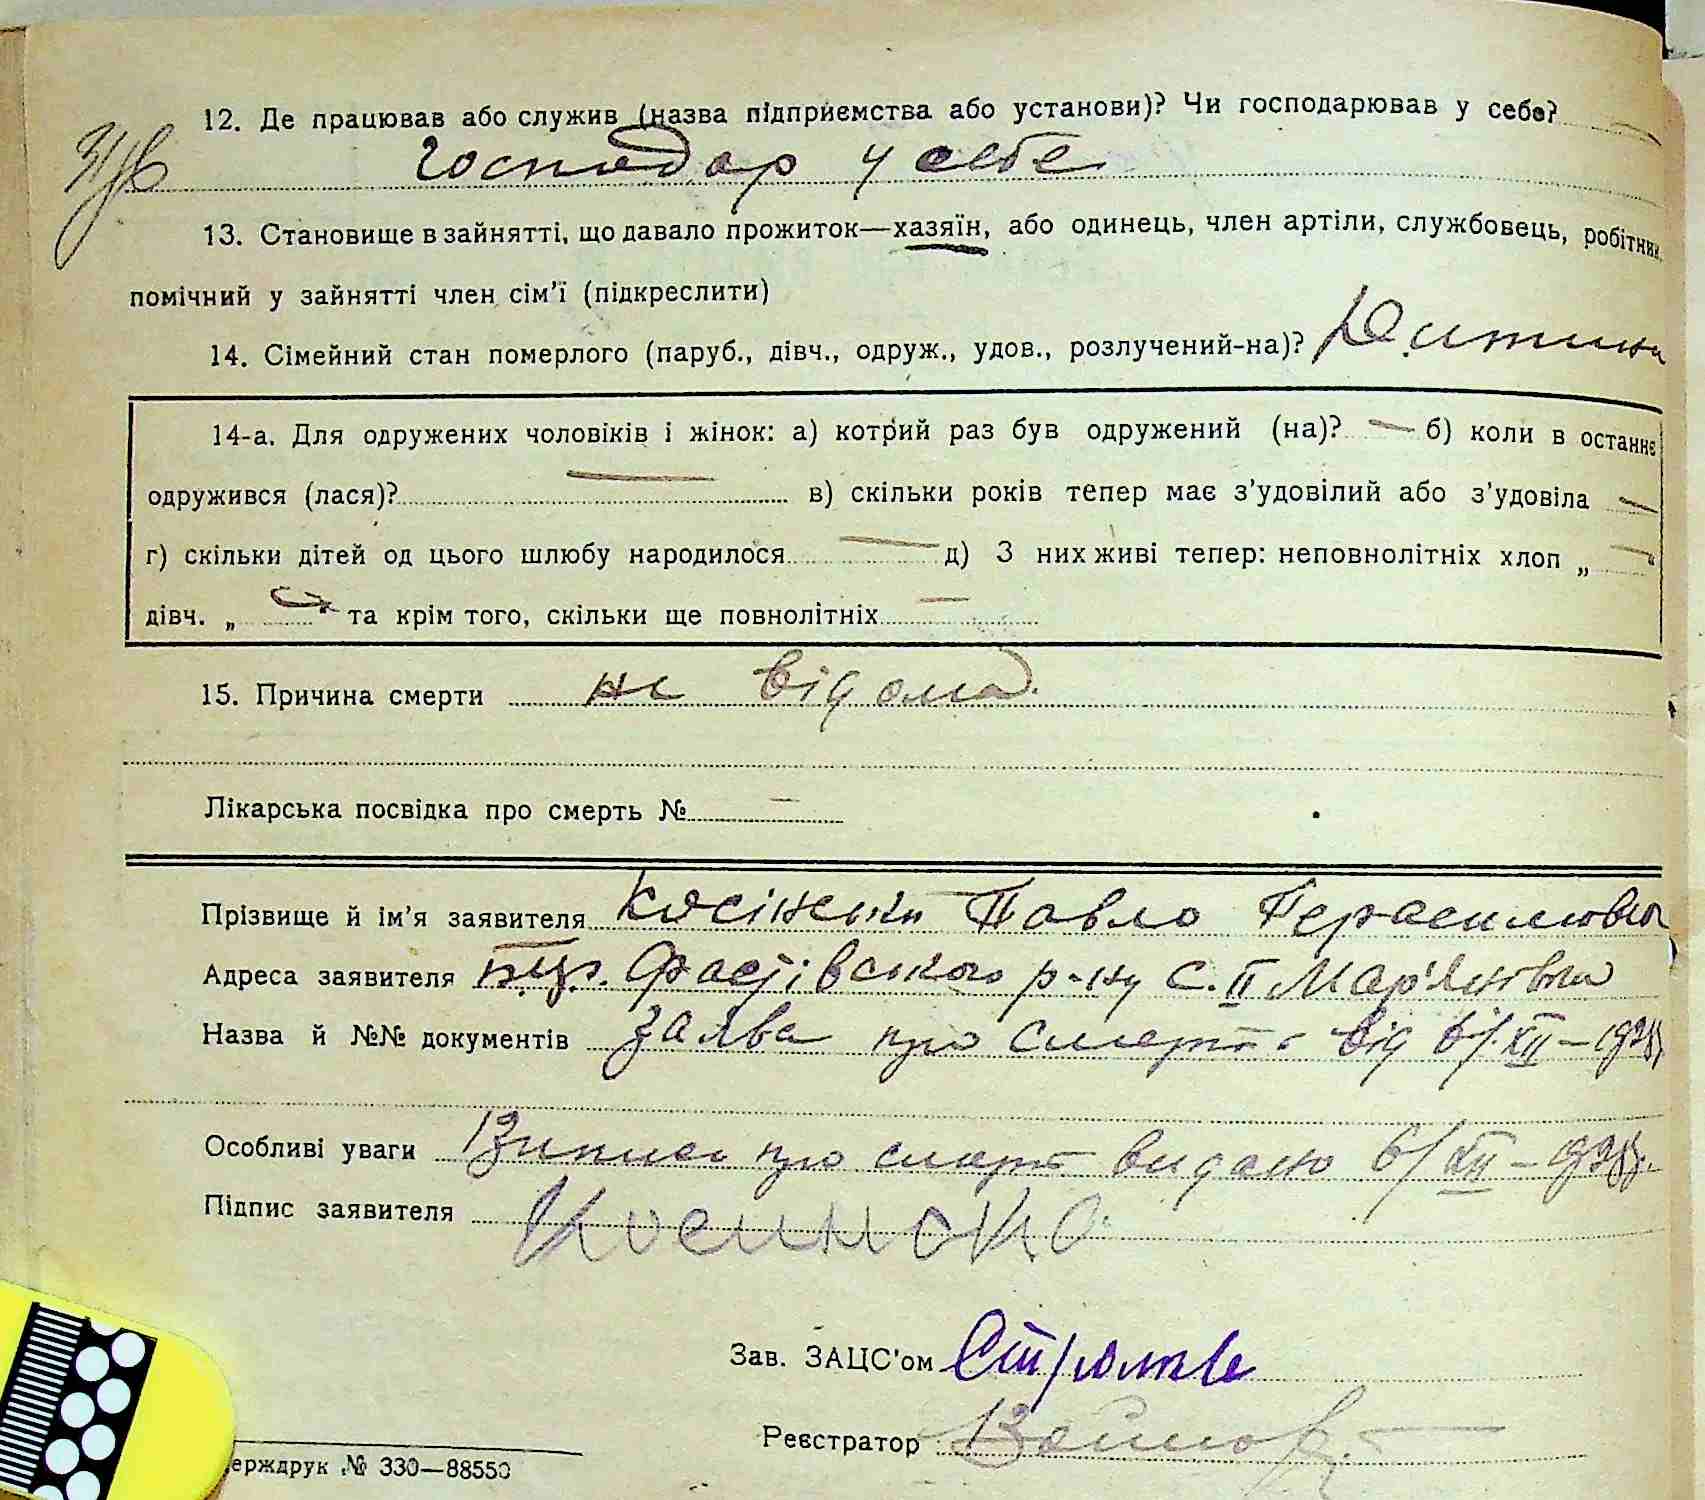 12. Де працював або служив (назва підприємства або установи)? Чи господарював у себе?
господар у себе
13. Становище в зайнятті, що давало прожиток—хазяїн, або одинець, член артіли, службовець, робітник
помічний у зайнятті член сім’ї (підкреслити)
14. Сімейний стан померлого (паруб., дівч., одруж., удов., розлучений-на)? Дитина
14-а. Для одружених чоловіків і жінок: а) котрий раз був одружений (на)? — б) коли в останнє
одружився (лася)? — в) скільки років тепер має з’удовілий або з’удовіла —
г) скільки дітей од цього шлюбу народилося — д) З них живі тепер: неповнолітніх хлоп „ — “
дівч. „ — “ та крім того, скільки ще повнолітніх —
15. Причина смерти не відома.
Лікарська посвідка про смерть № —
Прізвище й ім’я заявителя Косінськи Павло Герасимович
Адреса заявителя Фастівського р-ну с. II Мар'янівка
Назва й №№ документів заява про смерть від 6/XII—
Особливі уваги Випись про смерть видано 6/XII—
Підпис заявителя
Зав. ЗАЦС’ом
Реєстратор
ерждрук № 330—88550